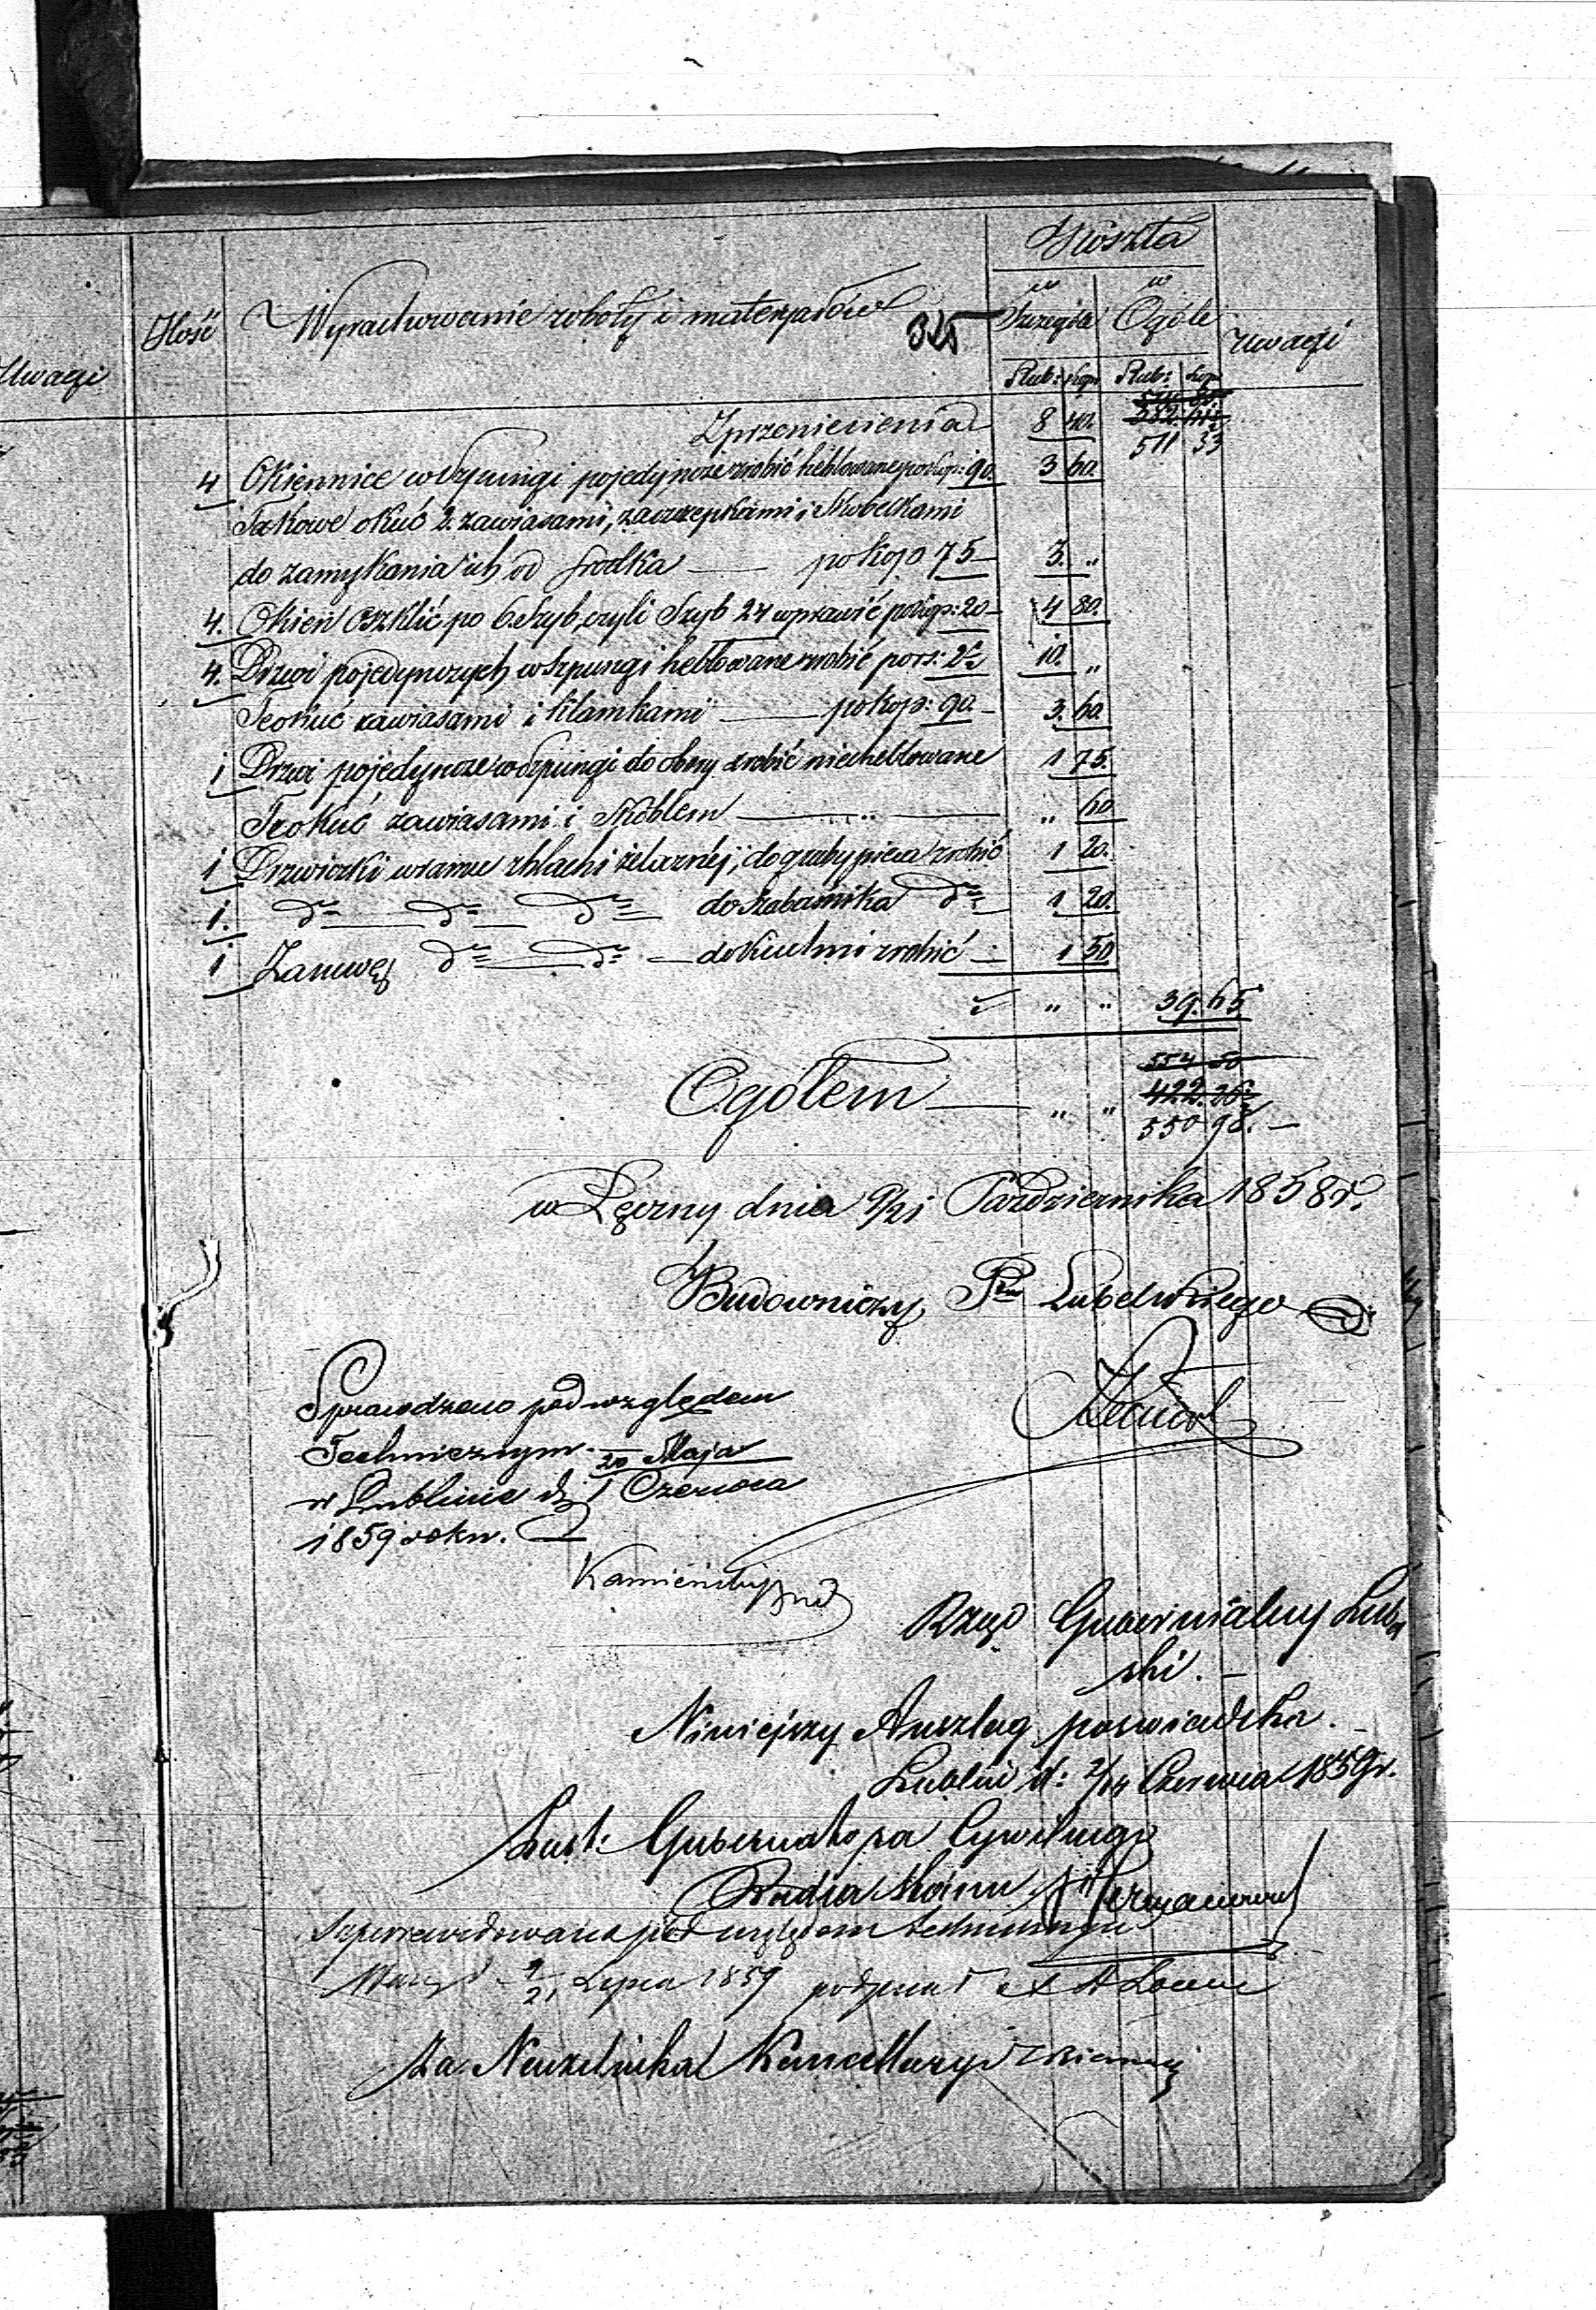 Uwagi
Ilość
Wyrachowanie roboty i materjałów
325
Koszta
w Szczególe
w Ogóle
Uwagi
Rub: kop Rub: kop
514 85.
Z przeniesienia 8 40. 382. 61½
511 33
4 Okiennice w szpungi pojedyńcze zrobić heblowane po kop: 90. 3 60.
Takowe okuć 2. zawiasami, zaczepkami i skobelkami
do zamykania ich od środka — po kop 75 — 3. "
4. Okien oszklić po 6. Szyb, czyli Szyb 24 wprawić po kop: 20 — 4 80.
4. Drzwi pojedynczych w szpungi heblowane zrobić po rs: 2½ 10. "
Te okuć zawiasami i klamkami — po kop: 90. — 3. 60.
1 Drzwi pojedyncze w szpungi do obory zrobić nieheblowane 1 75.
Te okuć zawiasami i skoblem — " — " 60
1 Drzwiczki w ramie z blachi żelaznéj, do gruby pieca zrobić 1 20.
1. dto dto dto do szabaśnika dto 1 20.
1 dto dto — do kuchni zrobić — 1 50
" " 39. 65.
554 50
Ogółem — " " 422. 26½
550 98. —
w Łęczny dnia 9/21 Października 1858 r.
Budowniczy Ptu Lubelskiego
Sprawdzono pod względem
Technicznym. — 20 Maja
w Lublinie d. 1 Czerwca
1859 roku.
Kamieński
Rząd Gubernialny Lubel
ski. —
Niniejszy Anszlag poswiadcha. —
Lublin d: 2/14 Czerwca 1859 r.
Gubernatora Cywilnego
Radca Stanu
pod względem technicznym
9/21 Lipca 1859 podpisał
Za Naczelnika Kancellaryi